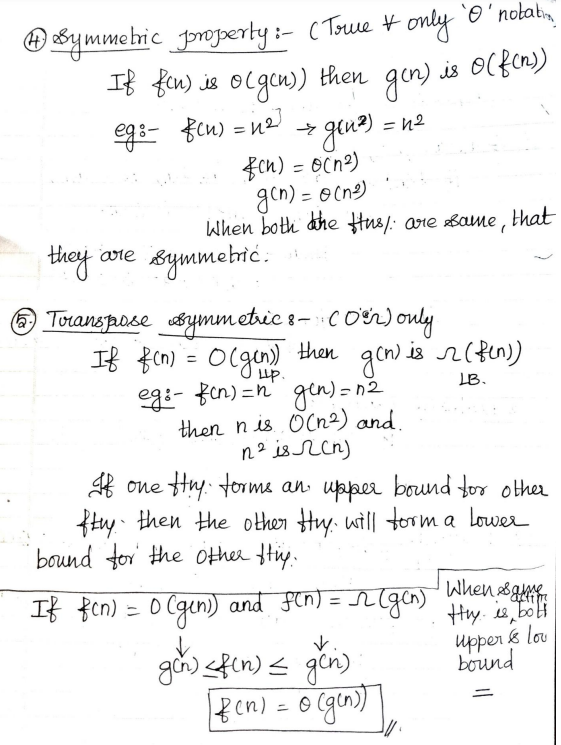 ④ Symmetric property :- (True ∀ only 'θ' notation
If f(n) is θ(g(n)) then g(n) is θ(f(n))
eg:- f(n) = n² → g(n²) = n²
f(n) = θ(n²)
g(n) = θ(n²)
When both the ftns/. are same, that
they are symmetric.
⑤ Transpose symmetric :- (O & Ω) only
If f(n) = O(g(n)) then g(n) is Ω(f(n))
UP. LB.
eg:- f(n) = n g(n) = n2
then n is O(n²) and.
n² is Ω(n)
If one ftn. forms an upper bound for other
ftn. then the other ftn. will form a lower
bound for the other ftn.
If f(n) = O(g(n)) and f(n) = Ω(g(n))
↓ ↓
g(n) ≤ f(n) ≤ g(n)
f(n) = θ(g(n))
When same
ftn. is, both
upper & low
bound
=